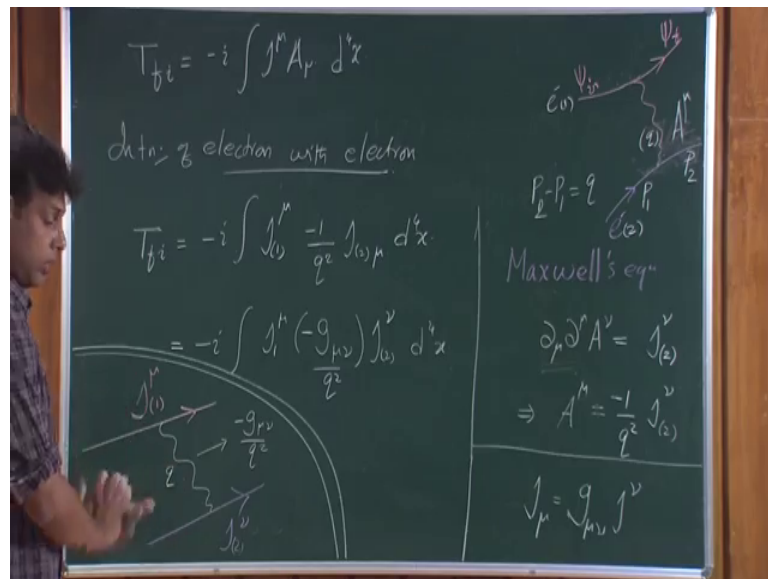 T_{fi} = -i ∫ J^μ A_μ d⁴x
Intn: of electron with electron
T_{fi} = -i ∫ J^μ_{(1)} \frac{-1}{q²} J_{(2)μ} d⁴x
= -i ∫ J_1^μ (\frac{-g_{μν}}{q²}) J^ν_{(2)} d⁴x
J^μ_{(1)}
q → \frac{-g_{μν}}{q²}
J^ν_{(2)}
ψ_f
ψ_{in}
e^-(1)
(q) A^μ
P_2
P_2 - P_1 = q
P_1
e^-(2)
Maxwell's eqn
∂_μ ∂^μ A^ν = J^ν_{(2)}
⇒ A^μ = \frac{-1}{q²} J^ν_{(2)}
J_μ = g_{μν} J^ν